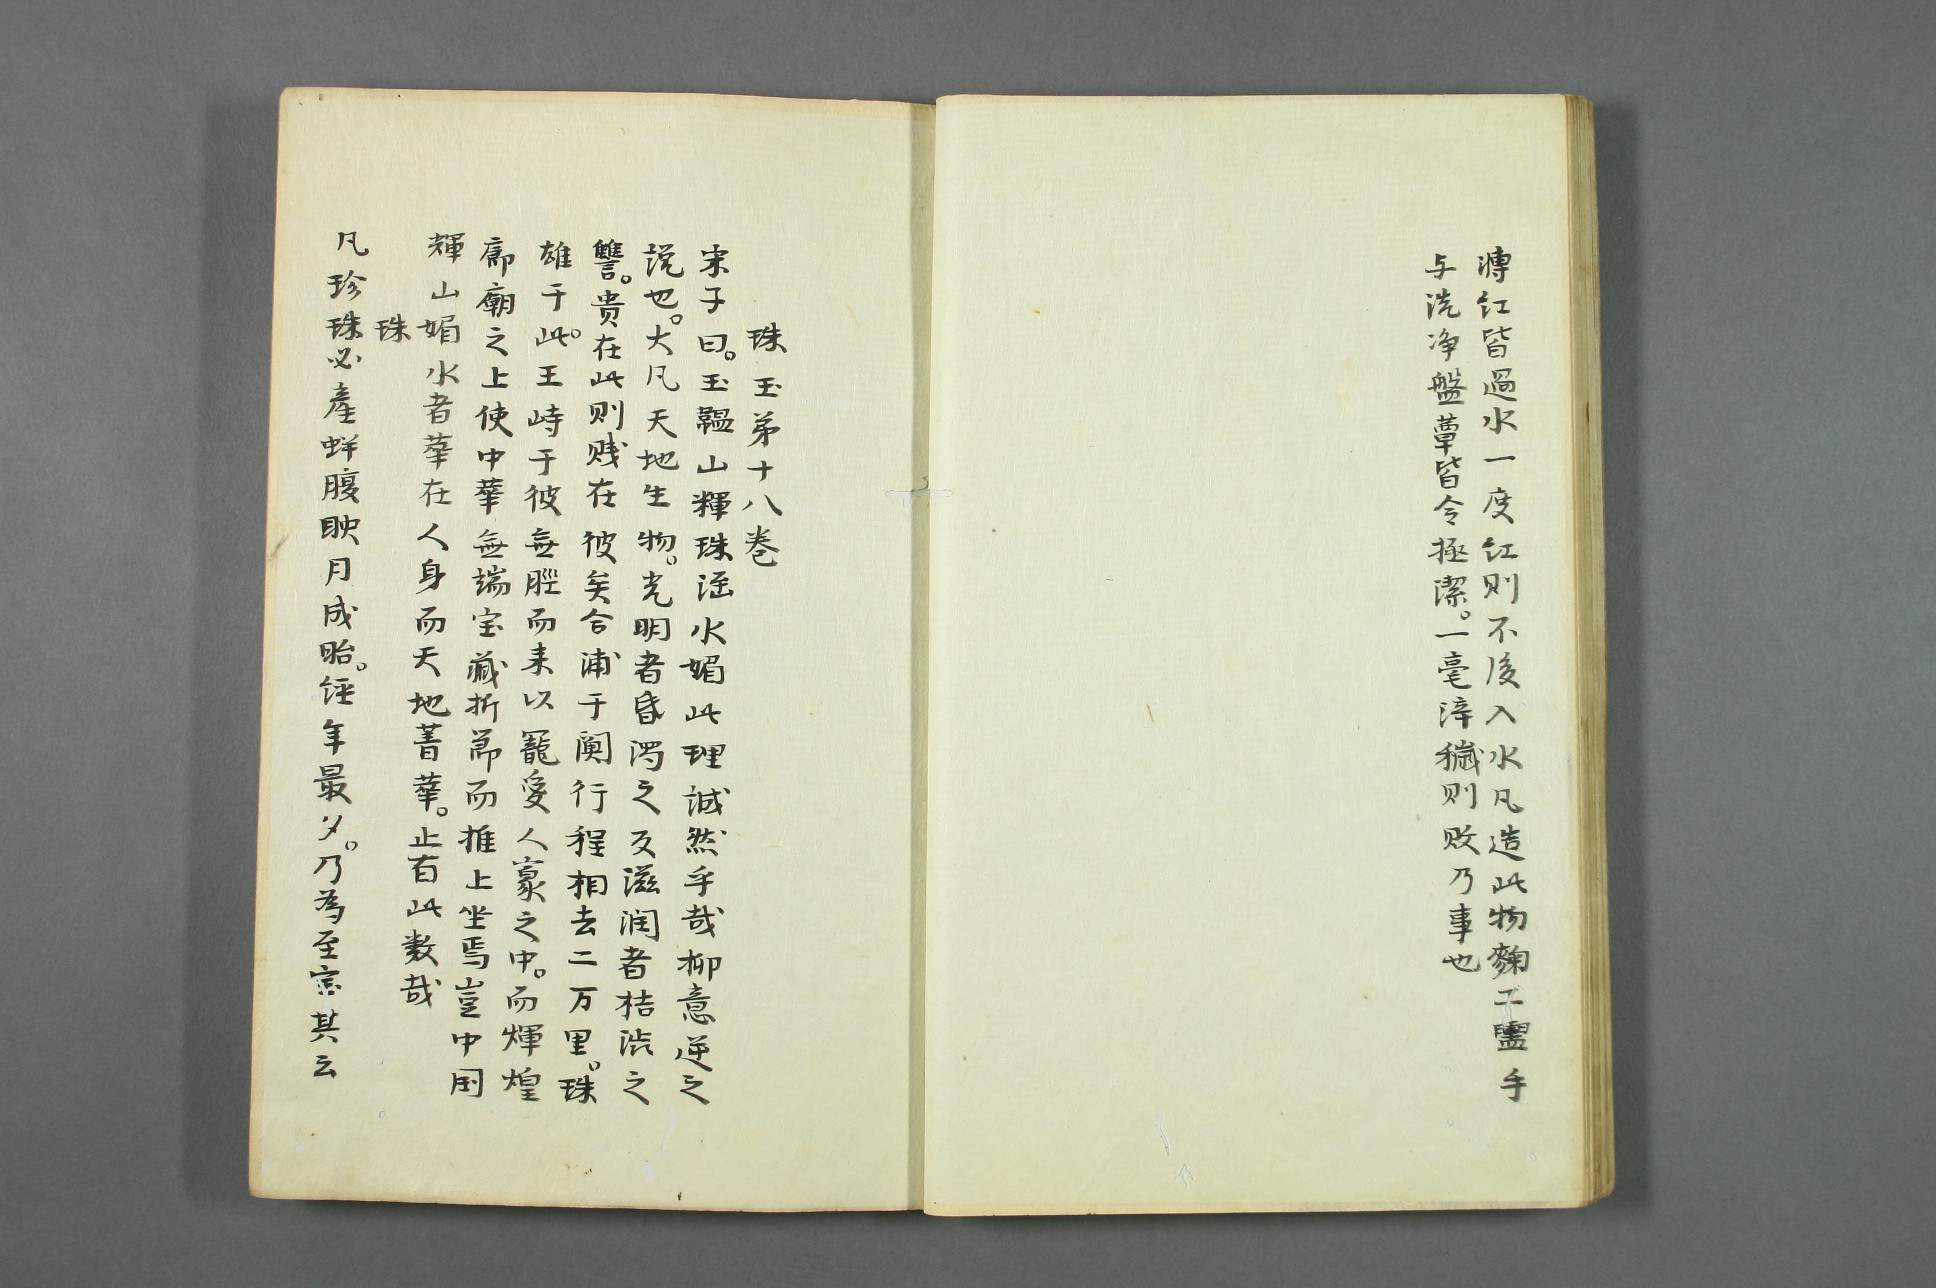 轉红皆過水一度红则不復入水凡造此物麴工盥手
与洗净盤簟皆令極潔。一毫滓穢则败乃事也
珠玉弟十八卷
宋子曰。玉韞山輝珠涵水媚此理誠然乎哉抑意逆之
説也。大凡天地生物。光明者昏濁之反滋润者枯渋之
讐。贵在此则贱在彼矣合浦于阗行程相去二万里。珠
雄于此。王峙于彼無脛而来以寵爱人寰之中。而輝煌
廊廟之上使中華無端宝藏折節而推上坐焉豈中国
輝山媚水者萃在人身而天地菁華。止有此数哉
珠
凡珍珠必產蚌腹映月成胎。経年最久。乃為至宝其云